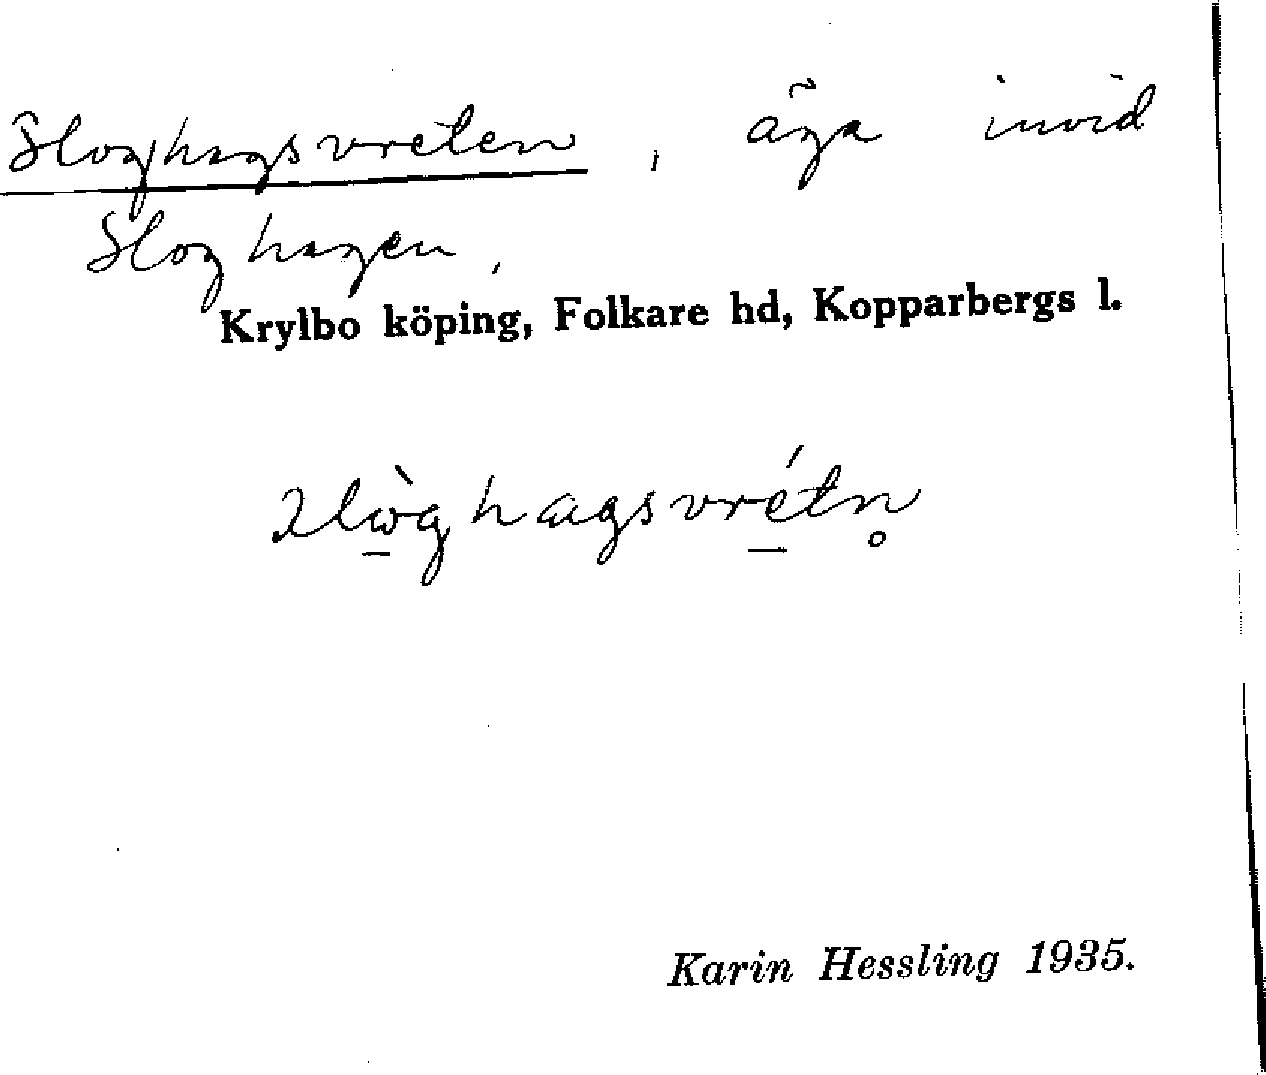 Sloghagsvreten, äga invid
Sloghagen,
Krylbo köping, Folkare hd, Kopparbergs l.
Karin Hessling 1935.